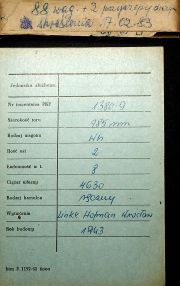 88 wag. + 2
skreślenia 7.02.83
Jednostka służbowa
Nr inwentarza PKP 1380.9
Szerokość toru 785 mm
Rodzaj wagonu Wh
Ilość osi 2
Ładowność w t. 8
Ciężar własny 4630
Rodzaj hamulca ręczny
Wytwórnia Linke Hofman Wrocław
Rok budowy 1943